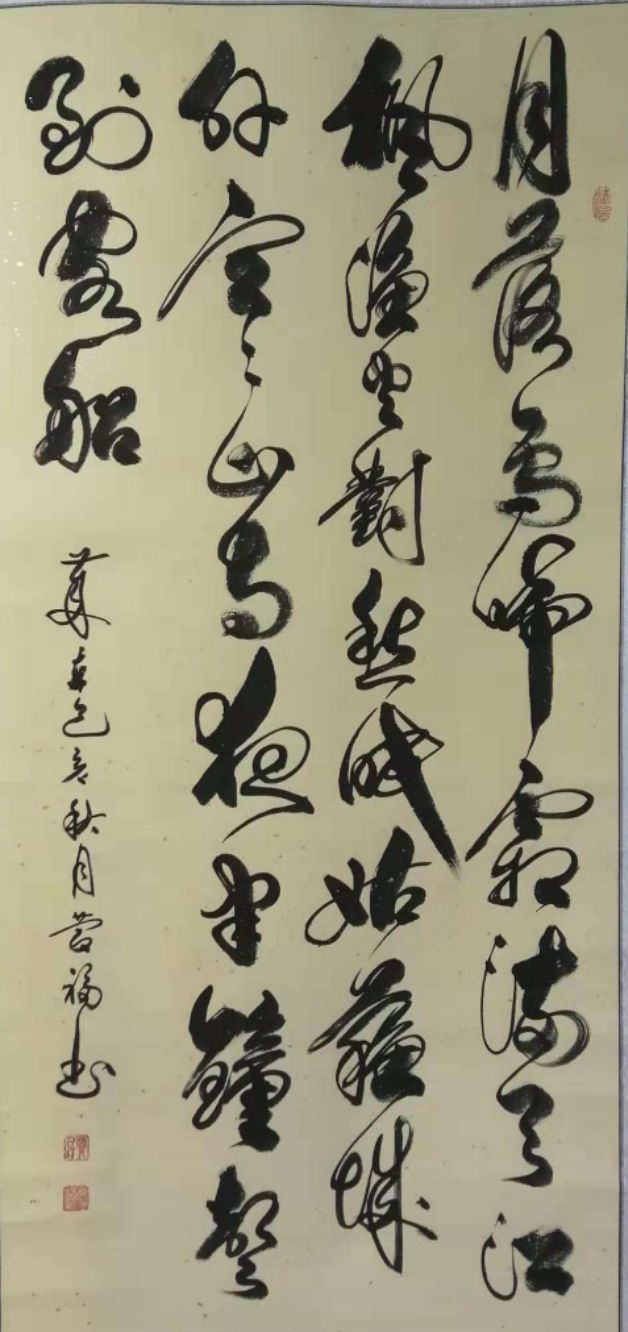 月落烏啼霜滿天江
楓漁火對愁眠姑蘇城
外寒山寺夜半鐘聲
到客船
己亥秋月福书